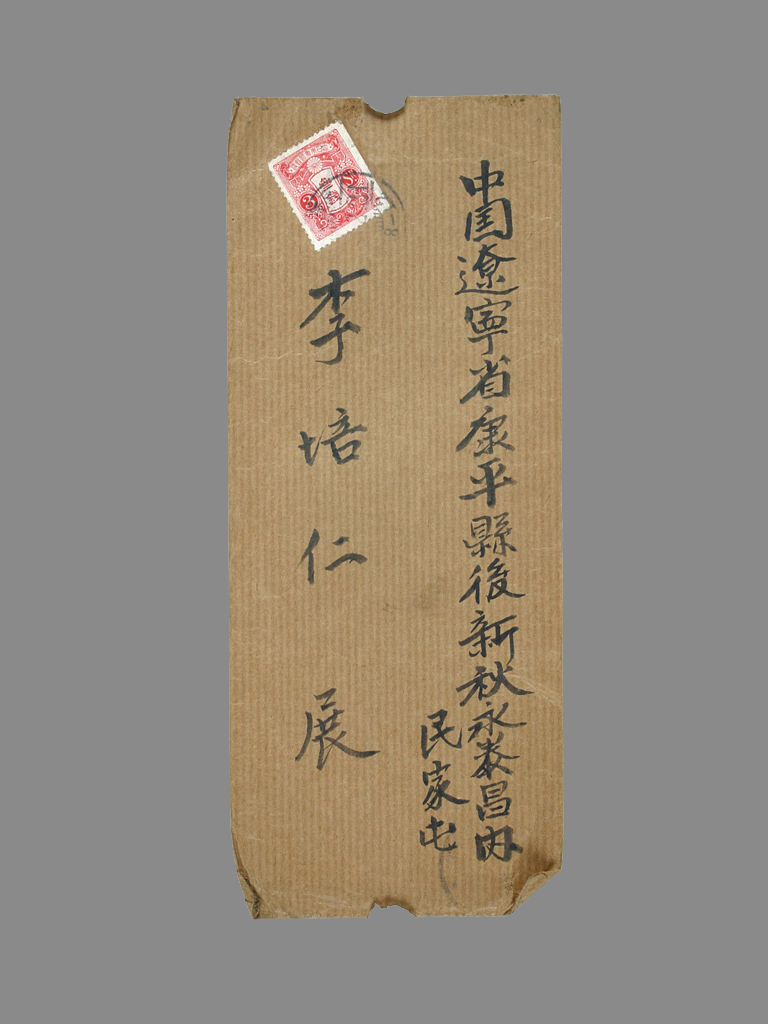 中国遼寧省康平縣後新秋永泰昌内
民家屯
李培仁展
3